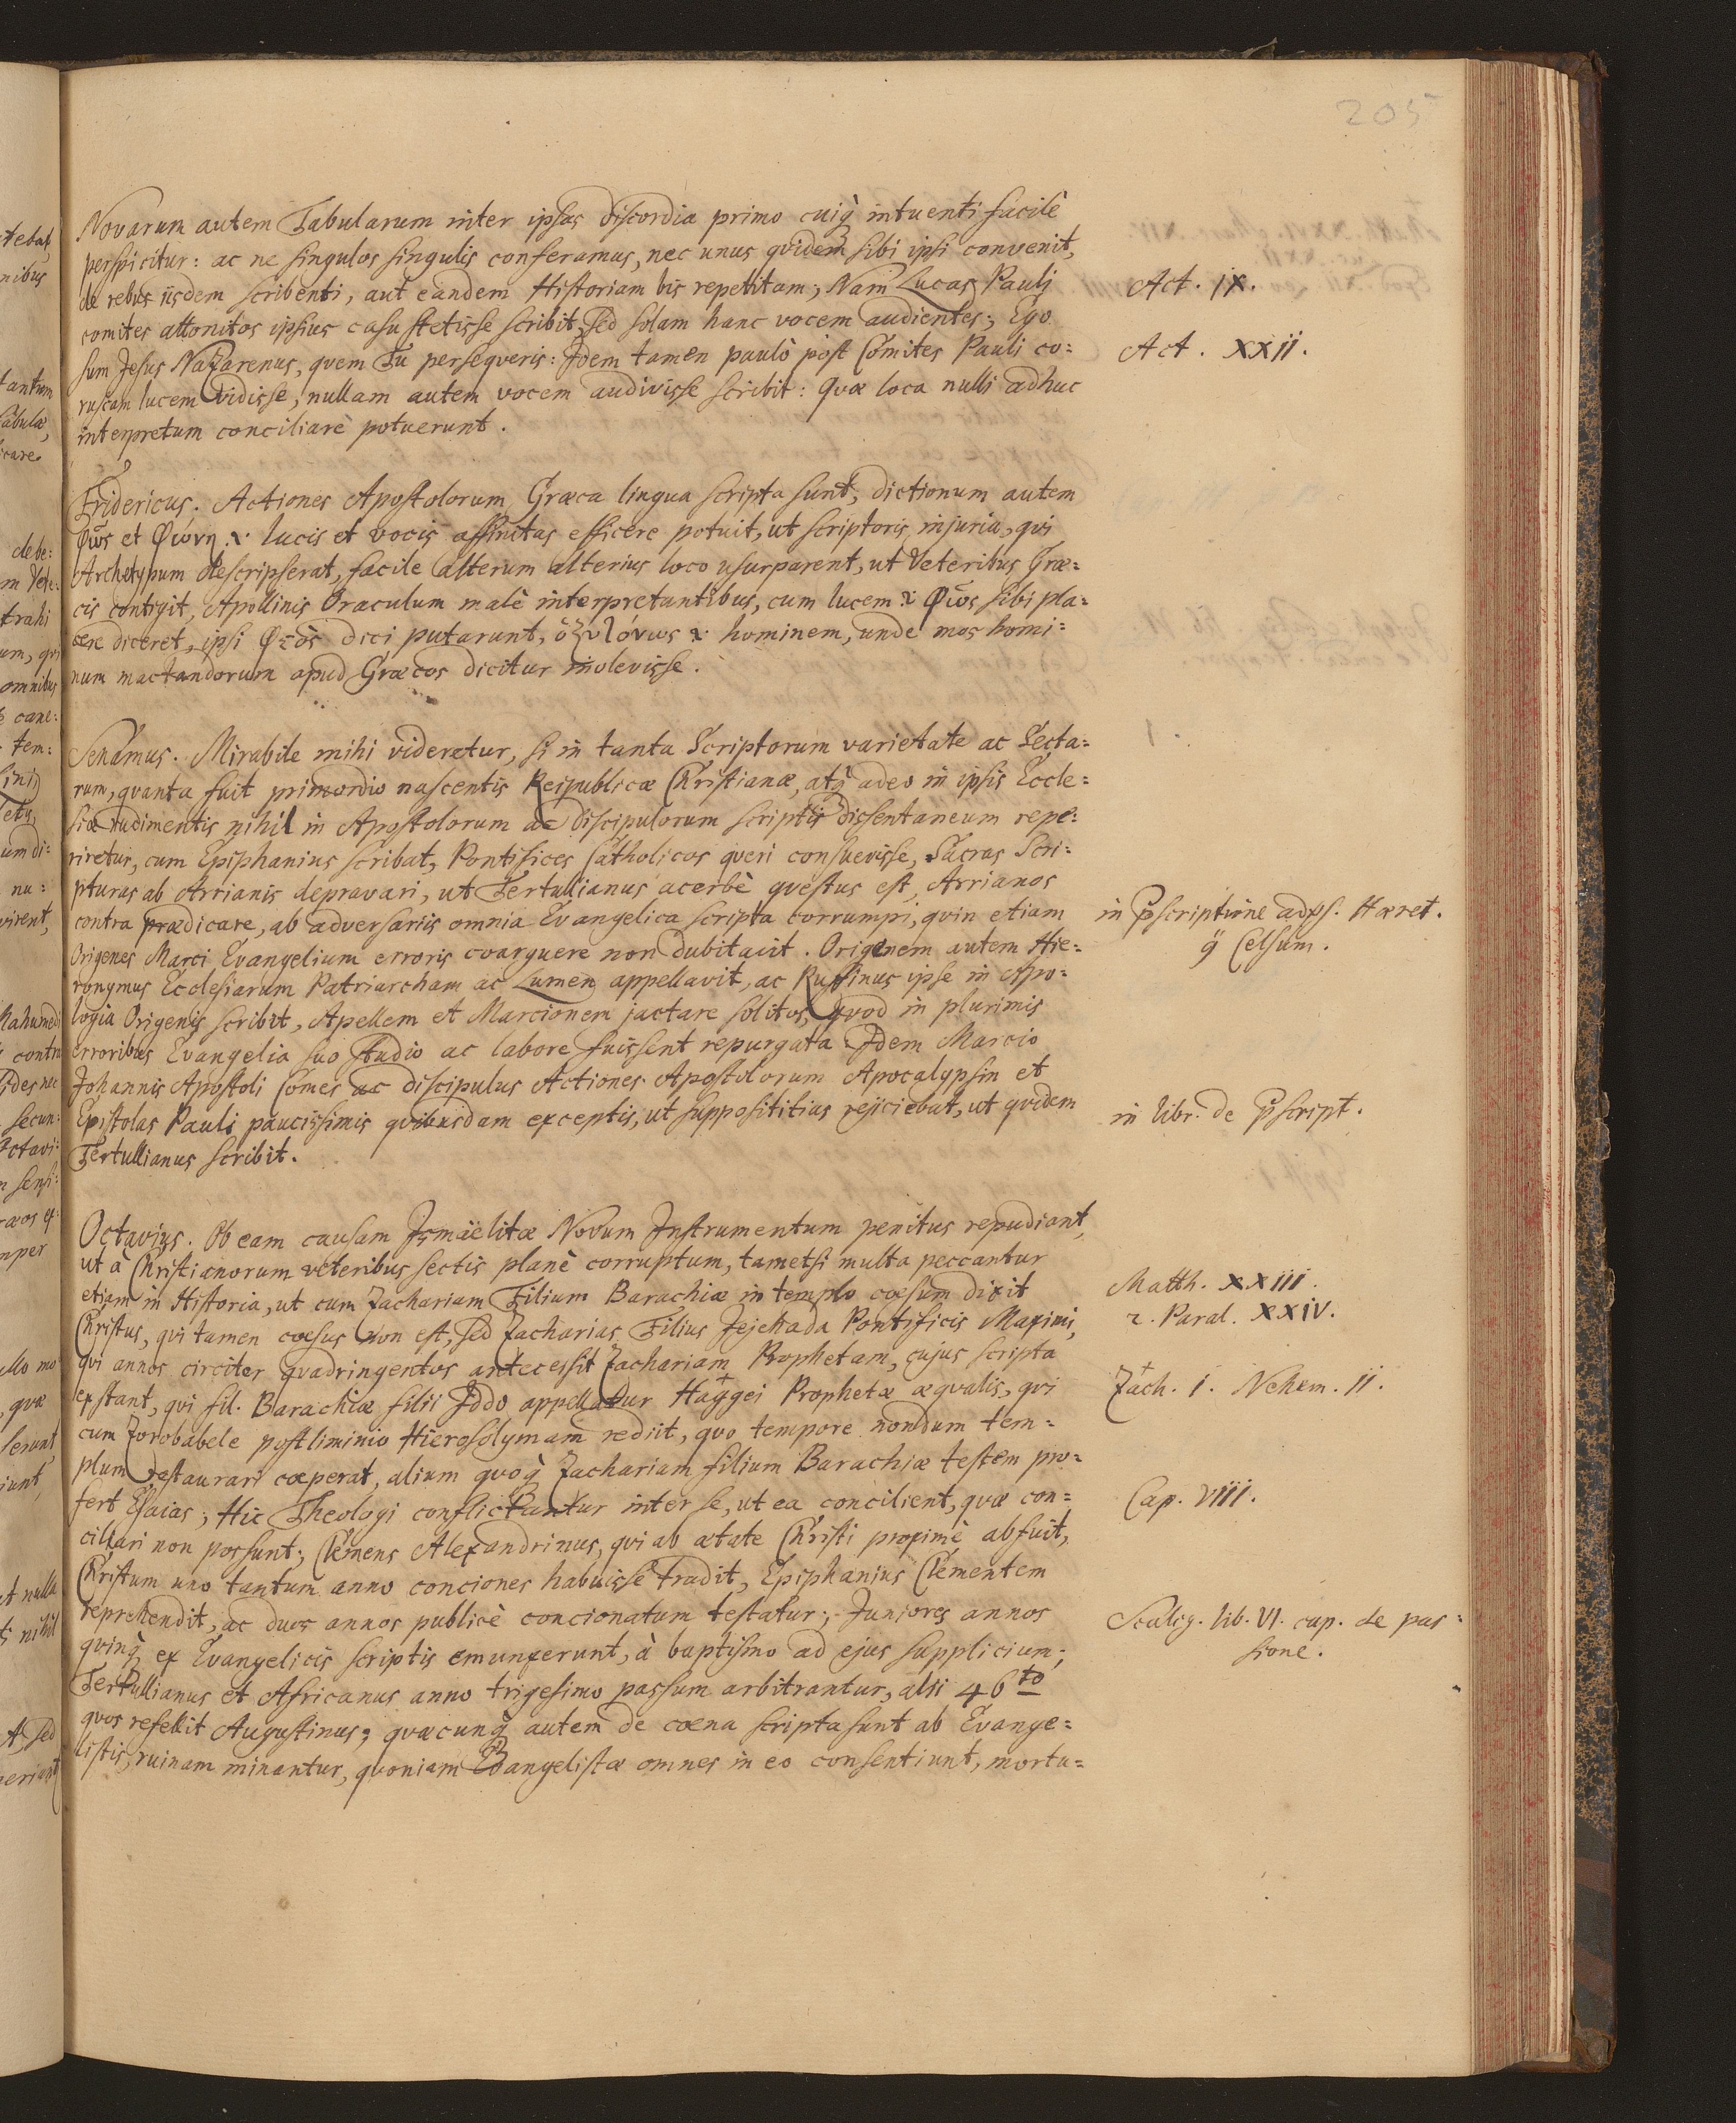 205
Novarum autem Tabularum inter ipsas discordia primo cuiq̀ intuenti facilè
perspicitur: ac ne singulos singulis conferamus, nec unus qvidem sibi ipsi convenit,
de rebus iisdem scribenti, aut eandem Historiam bis repetitam; Nam Lucas Pauli
Act. IX.
comites attonitos ipsius casu stetisse scribit, sed solam hanc vocem audientes; Ego
sum Jesus Nazarenus, qvem Tu perseqveris: Idem tamen paulò pòst Comites Pauli co=
Act. XXII.
ruscam lucem vidisse, nullam autem vocem audivisse scribit: Qvæ loca nulli adhuc
interpretum conciliare potuerunt.
Fridericus. Actiones Apostolorum Græca lingua scripta sunt, dictionum autem
Φῶς et Φώνη .i. lucis et vocis affinitas efficere potuit, ut scriptoris injuria, qvi
Archetypum descripserat, facile alterum alterius loco usurparent, ut Veteribus Græ=
cis contigit, Apollinis Oraculum malè interpretantibus, cum lucem .i. Φῶς sibi pla=
cere diceret, ipsi Φὼς dici putarunt, ὀξυτόνως .i. hominem, unde mos homi=
num mactandorum apud Græcos dicitur inolevisse.
Senamus. Mirabile mihi videretur, si in tanta Scriptorum varietate ac Secta=
rum, qvanta fuit primordio nascentis Reipublicæ Christianæ, atq̀ adeo in ipsis Eccle=
siæ rudimentis nihil in Apostolorum ac discipulorum scriptis dissentaneum repe=
riretur, cum Epiphanius scribat, Pontifices Catholicos qveri consuevisse, Sacras Scri=
pturas ab Arrianis depravari, ut Tertullianus acerbè qvestus est, Arrianos
contra prædicare, ab adversariis omnia Evangelica scripta corrumpi, qvin etiam
in p̄scriptione adv̄s. Hæret.
Origenes Marci Evangelium erroris coarguere non dubitavit. Origenem autem Hie=
q̈ Celsum.
ronymus Ecclesiarum Patriarcham ac Lumen appellavit, ac Ruffinus ipse in Apo=
logia Origenis scribit, Apellem et Marcionem jactare solitos, qvod in plurimis
erroribus Evangelia suo studio ac labore fuissent repurgata Idem Marcio
Johannis Apostoli Comes ac discipulus Actiones Apostolorum Apocalypsin et
Epistolas Pauli paucissimis qvibusdam exceptis, ut supposititias rejiciebat, ut qvidem
in libr. de p̄script.
Tertullianus scribit.
Octavius. Ob eam causam Ismäelitæ Novum Instrumentum penitus repudiant,
ut à Christianorum veteribus sectis planè corruptum, tametsi multa peccantur
etiam in Historia, ut cum Zachariam Filium Barachiæ in templo cæsum dixit
Matth. XXIII.
Christus, qvi tamen cæsus non est, sed Zacharias Filius Jejehada Pontificis Maximi,
2. Paral. XXIV.
qvi annos circiter qvadringentos antecessit Zachariam Prophetam, cujus scripta
extant, qvi fil. Barachiæ filii Iddo appellatur + Haggei Prophetæ æqvalis, qvi
+ Zach. I. Nehem. II.
cum Zorobabele postliminio Hierosolymam rediit, qvo tempore nondum tem=
plum restaurari cæperat, alium qvoq̀ Zachariam filium Barachiæ testem pro=
fert Esaias; Hic Theologi conflictantur inter se, ut ea concilient, qvæ con=
Cap. VIII.
ciliari non possunt; Clemens Alexandrinus, qvi ab ætate Christi proximè abfuit,
Christum uno tantum anno conciones habuisse tradit, Epiphanius Clementem
reprehendit, ac duos annos publicè concionatum testatur; Juniores annos
Scalig. lib. VI. cap. de pas=
qvinq̀ ex Evangelicis scriptis emunxerunt, à baptismo ad ejus supplicium;
sione.
Tertullianus et Africanus anno trigesimo passum arbitrantur, alii 46to
qvos refellit Augustinus; qvæcunq̀ autem de cœna scripta sunt ab Evange=
listis, ruinam minantur, qvoniam Evangelistæ omnes in eo consentiunt, mortu=